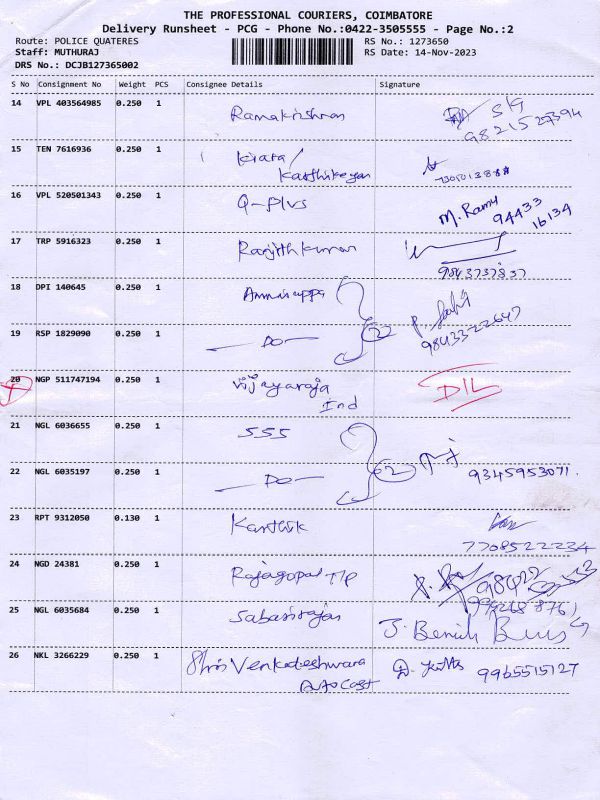 THE PROFESSIONAL COURIERS, COIMBATORE
Delivery Runsheet - PCG - Phone No.:0422-3505555 - Page No.:2
Route: POLICE QUATERES RS No.: 1273650
Staff: MUTHURAJ RS Date: 14-Nov-2023
DRS No.: DCJB127365002
S No Consignment No Weight PCS Consignee Details Signature
14 VPL 403564985 0.250 1 Ramakrishnan
15 TEN 7616936 0.250 1 Kiara/
Karthikeyan
16 VPL 520501343 0.250 1 Q-Plus M. Ramy 94433
16134
17 TRP 5916323 0.250 1 Ranjithkumar
9843737837
18 DPI 140645 0.250 1
19 RSP 1829090 0.250 1 — Do — 2 9843322647
20 NGP 511747194 0.250 1 Vijayaraja D/L
Ind
21 NGL 6036655 0.250 1 SSS
22 NGL 6035197 0.250 1 — Do — 2 9345953071.
23 RPT 9312050 0.130 1 Karthik
7708522234
24 NGD 24381 0.250 1 Rajagopal T/P
25 NGL 6035684 0.250 1
26 NKL 3266229 0.250 1 Shri Venkadeshwara 9965515127
Auto Cast